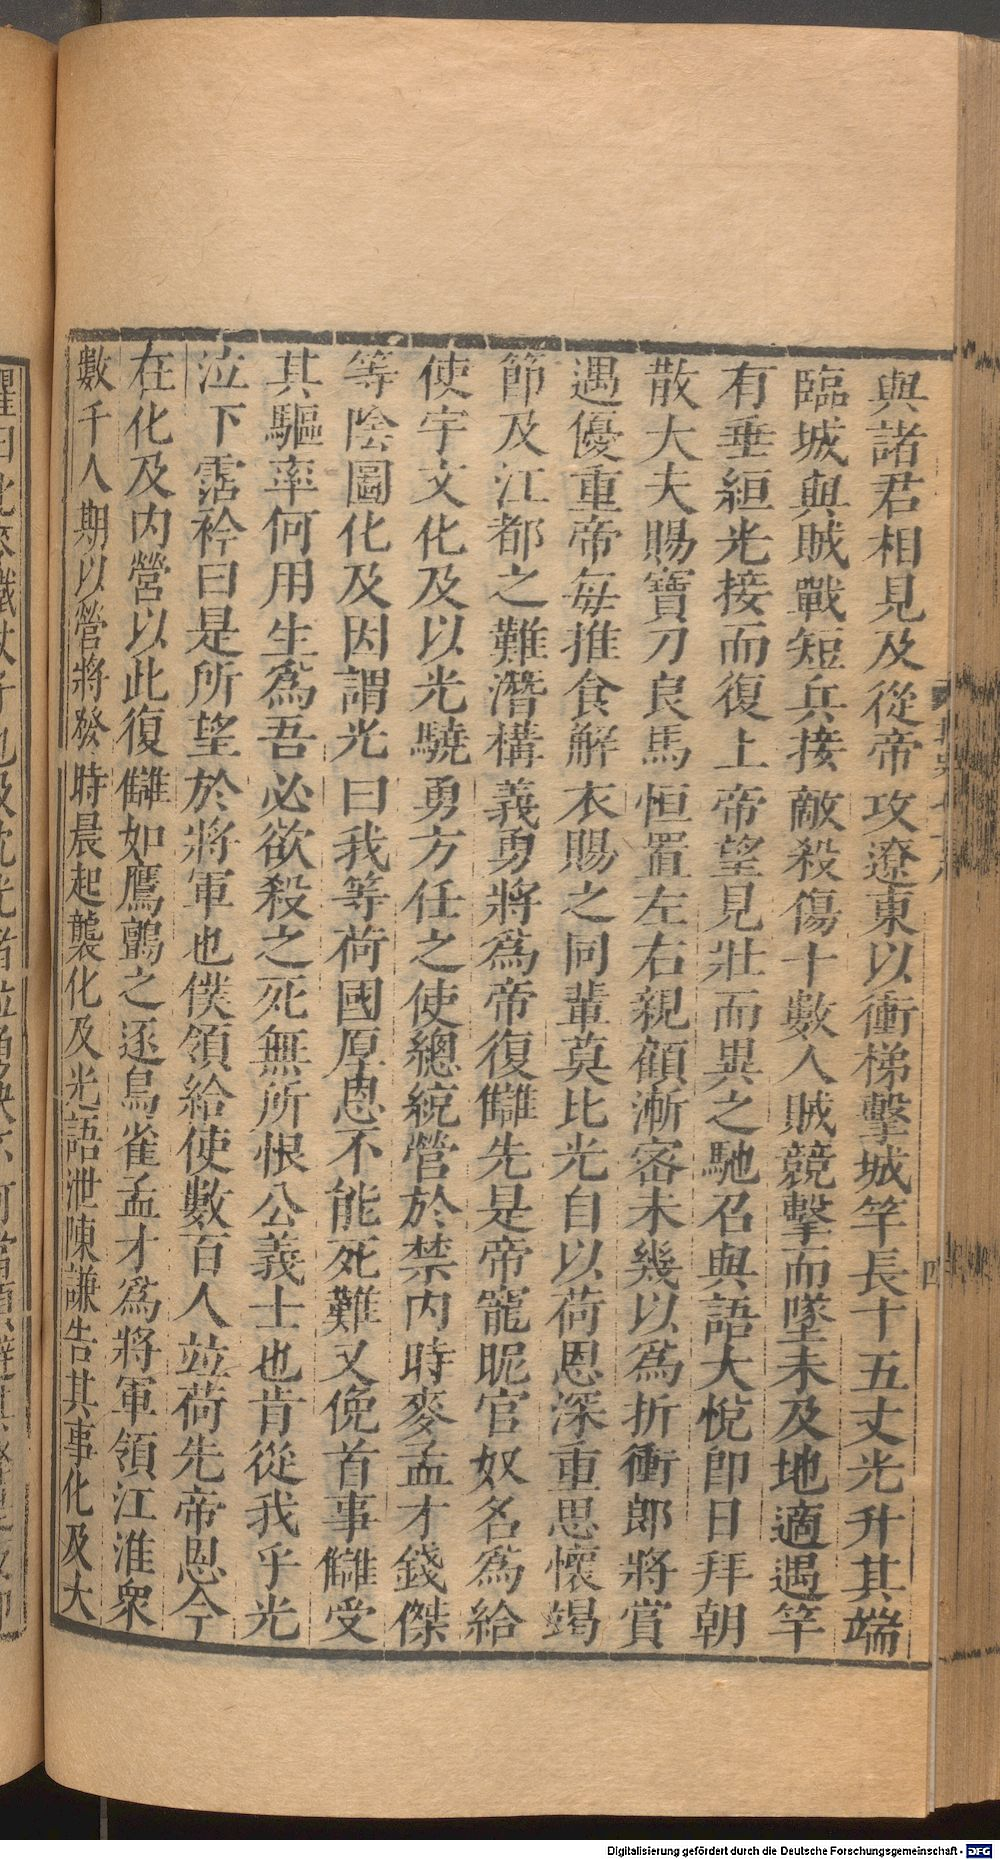 與諸君相見及從帝攻遼東以衝梯擊城竿長十五丈光升其端
臨城與賊戰短兵接敵殺傷十數人賊競擊而墜未及地適遇竿
有垂絙光接而復上帝望見壯而異之馳召與語大悅卽日拜朝
散大夫賜寶刀良馬恒置左右親顧漸密未幾以爲折衝郎將賞
遇優重帝每推食解衣賜之同輩莫比光自以荷恩深重思懷竭
節及江都之難潛構義勇將爲帝復讎先是帝寵昵官奴名爲給
使宇文化及以光驍勇方任之使總統營於禁內時麥孟才錢傑
等陰圖化及因謂光曰我等荷國厚恩不能死難又俛首事讎受
其驅率何用生爲吾必欲殺之死無所恨公義士也肯從我乎光
泣下霑衿曰是所望於將軍也僕領給使數百人竝荷先帝恩今
在化及內營以此復讎如鷹鸇之逐鳥雀孟才爲將軍領江淮衆
數千人期以營將發時晨起襲化及光語泄陳謙告其事化及大
四
Digitalisierung gefördert durch die Deutsche Forschungsgemeinschaft - DFG